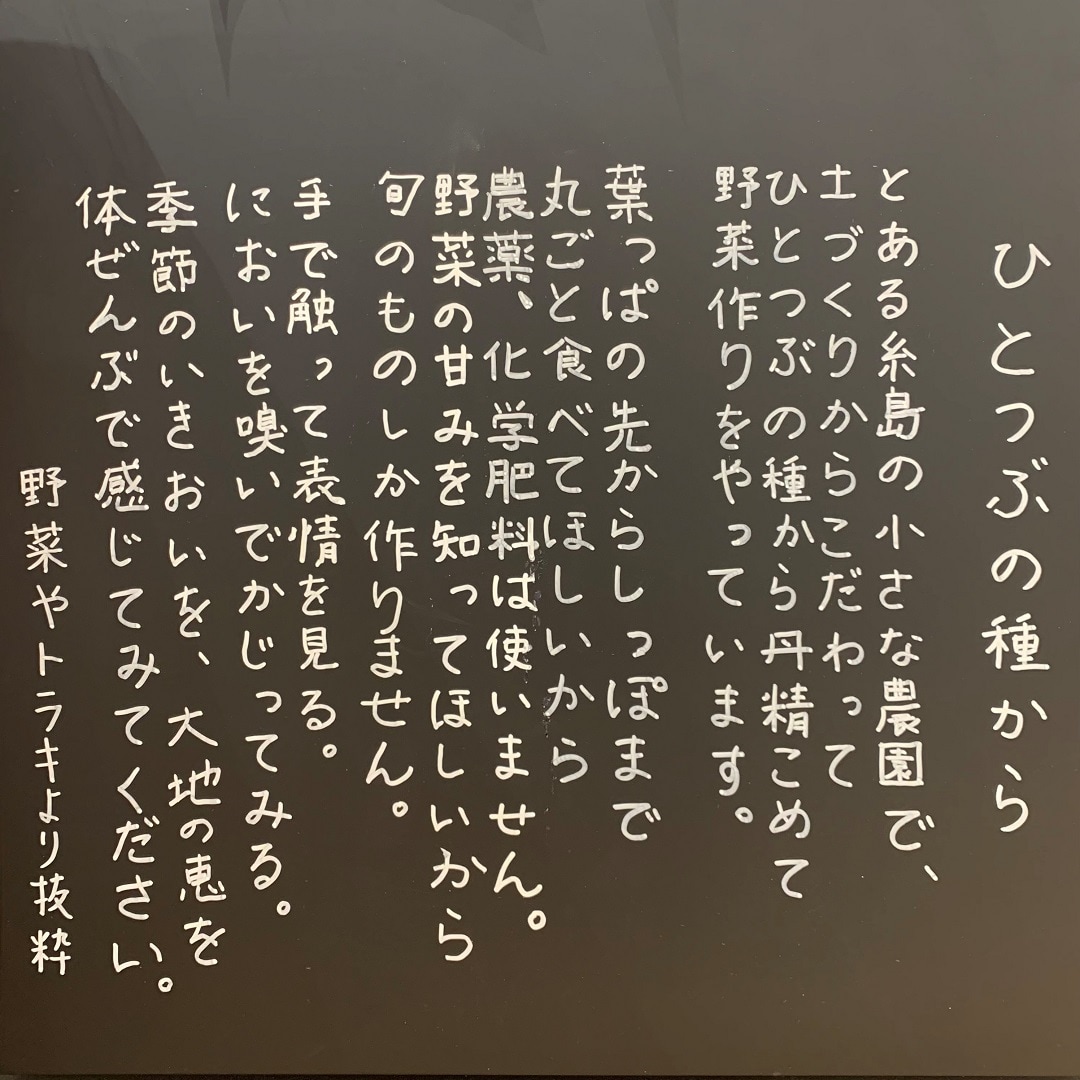 ひとつぶの種から
とある糸島の小さな農園で、
土づくりからこだわって
ひとつぶの種から丹精こめて
野菜作りをやっています。
葉っぱの先からしっぽまで
丸ごと食べてほしいから
農薬、化学肥料は使いません。
野菜の甘みを知ってほしいから
旬のものしか作りません。
手で触って表情を見る。
においを嗅いでかじってみる。
季節のいきおいを、大地の恵を
体ぜんぶで感じてみてください。
野菜やトラキより抜粋